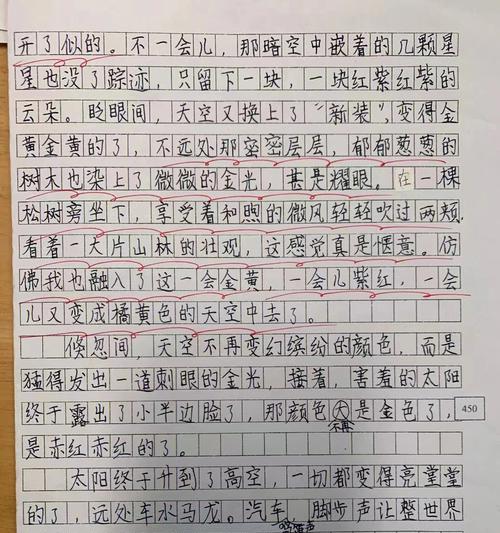 开了似的。不一会儿，那暗空中嵌着的几颗星
星也没了踪迹，只留下一块，一块红紫红紫的
云朵。眨眼间，天空又换上了“新装”，变得金
黄金黄的了，不远处那密密层层，郁郁葱葱的
树木也染上了微微的金光，甚是耀眼。在一棵
松树旁坐下，享受着和煦的微风轻轻吹过两颊，
看着一大片山林的壮观，这感觉真是惬意。仿
佛我也融入了这一会金黄，一会儿紫红，一会
儿又变成橘黄色的天空中去了。
倏忽间，天空不再变幻缤纷的颜色，而是
猛得发出一道刺眼的金光，接着，害羞的太阳
终于露出了小半边脸了，那颜色不再是金色了，
450
是赤红赤红的了。
太阳终于升到了高空，一切都变得亮堂堂
的了，远处车水马龙。汽车、脚步声让整世界